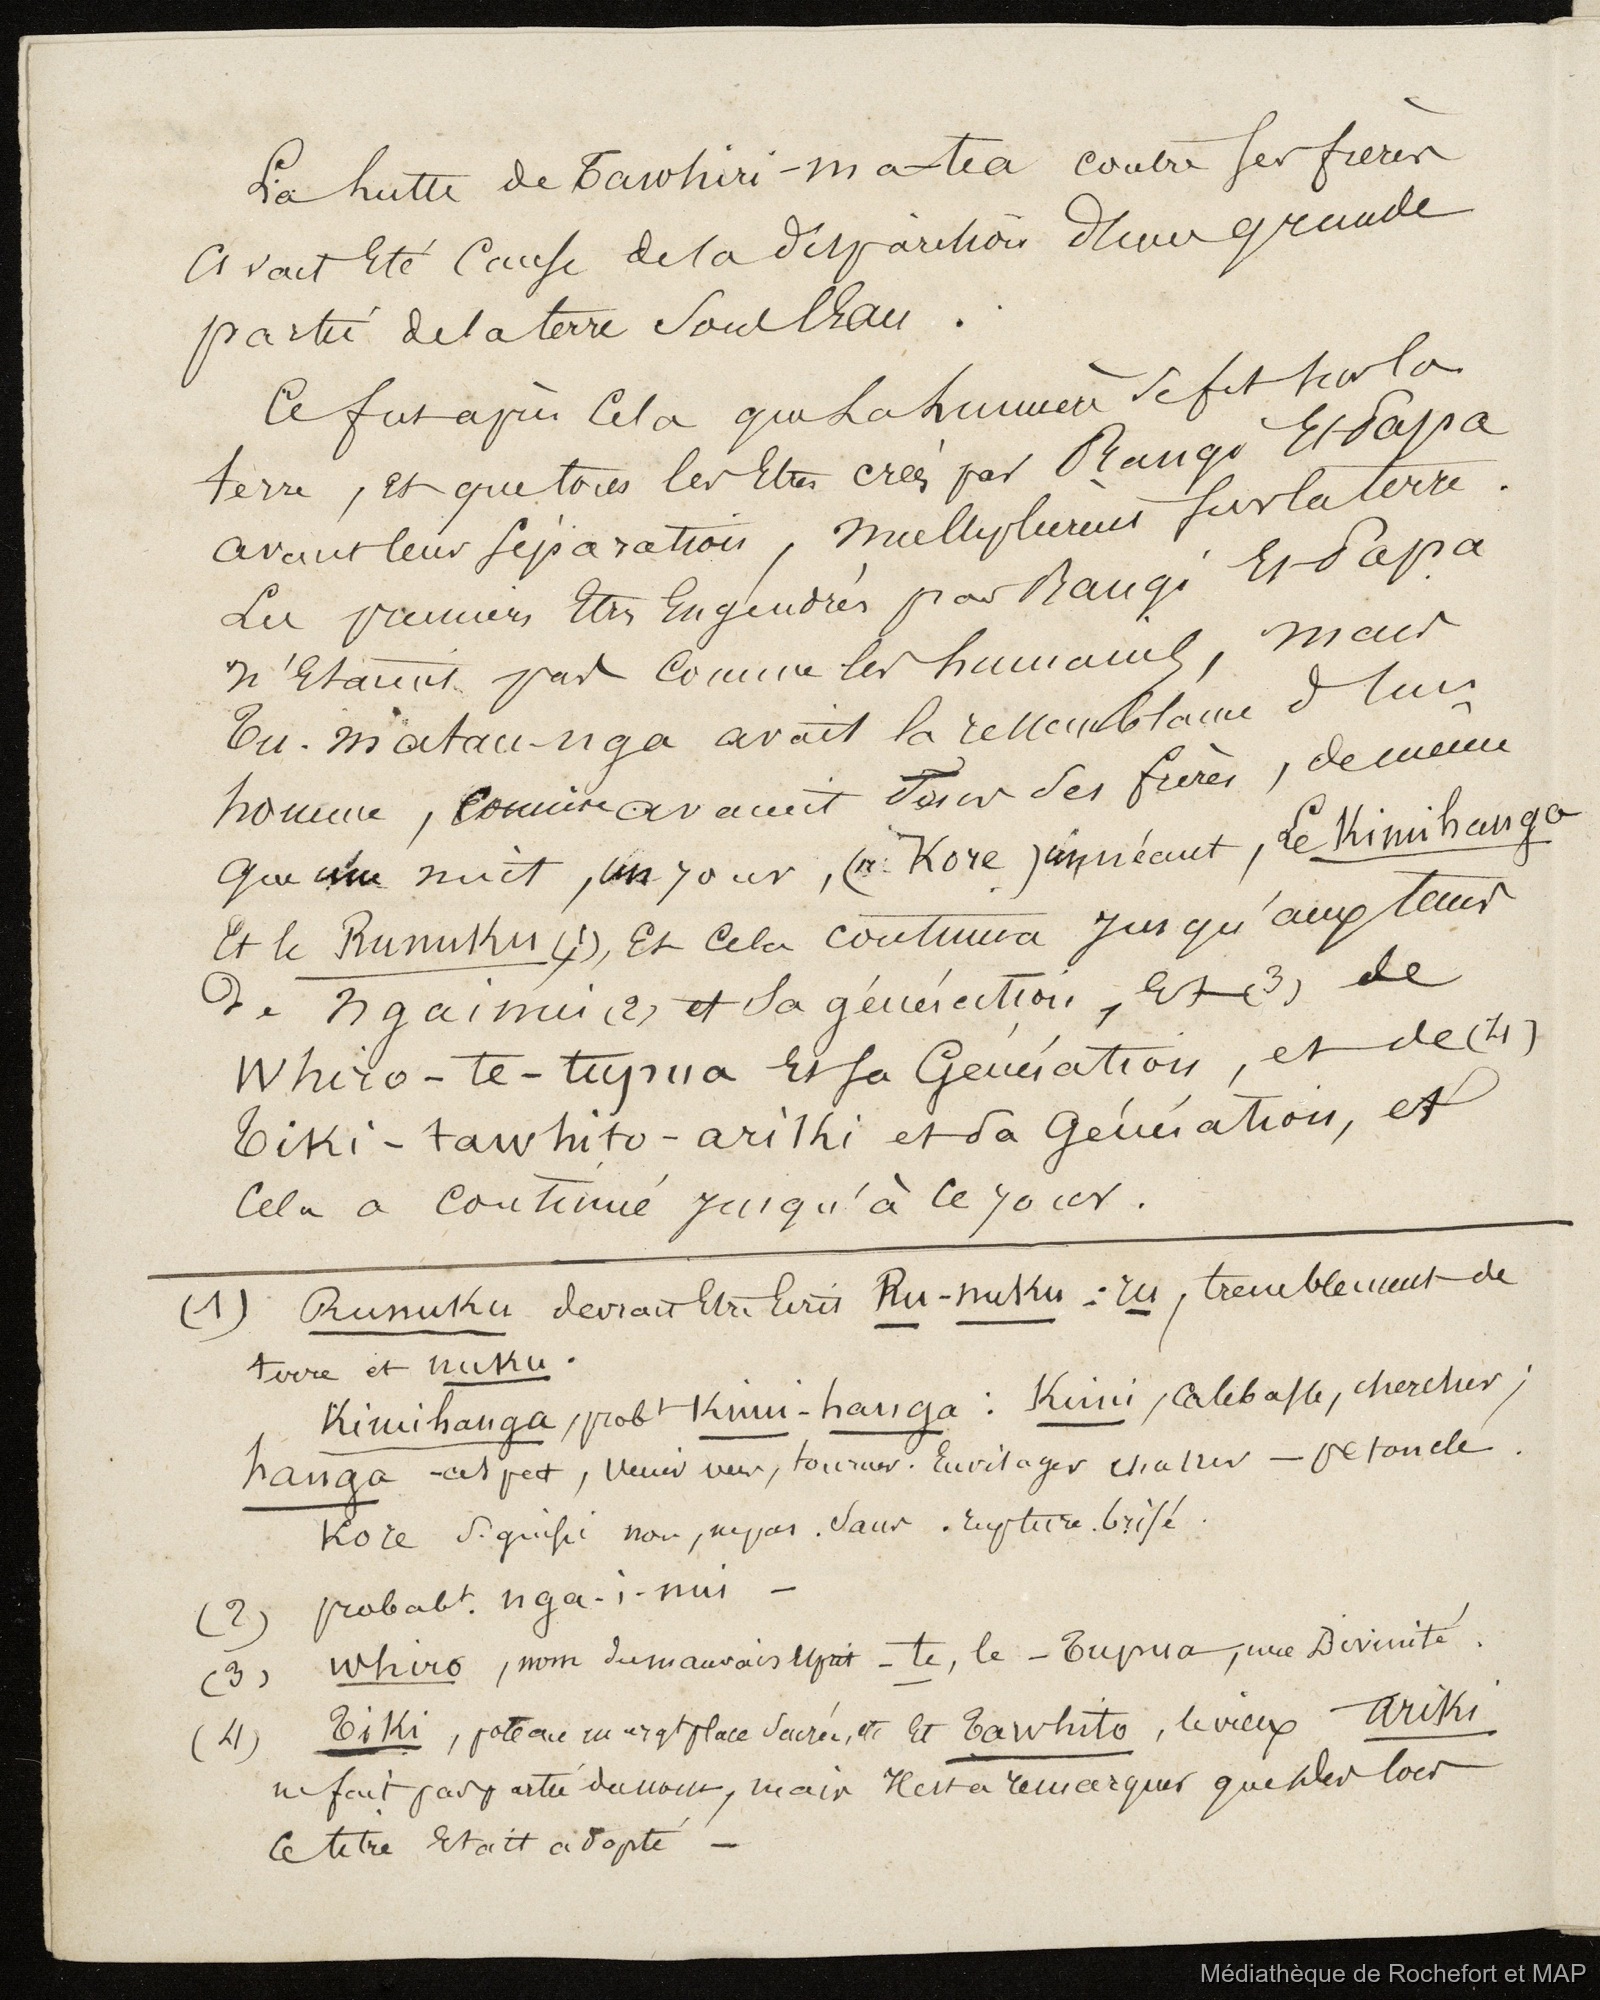 La lutte de Tawhiri-ma-tea contre ses frères
avait été cause de la disparition d'une grande
partie de la terre sous l'Eau.
Ce fut après cela que la lumière se fit sur la
terre, et que tous les Etres créés par Rangi Et Papa
avant leur séparation, multiplièrent sur la terre.
Les premiers Etres Engendrés par Rangi Et Papa
n'Etaient pas comme les humains, mais
Tu-matau-nga avait la ressemblance d'un
homme, comme avaient tous ses frères, de même
que une nuit, un jour, (n. Kore) un néant, Le Kimihanga
Et le Runuku (1), Et Cela continua jusqu'aux temps
De Ngaimui (2) et sa génération, Et (3) de
Whiro-te-tupua Et sa Génération, et de (4)
Tiki-tawhito-ariki et sa Génération, et
Cela a continué jusqu'à ce jour.
(1) Runuku devrait Etre Ecrit Ru-nuku : ru, tremblement de
terre et nuku.
Kimihanga, probt Kimi-hanga : Kimi, calebasse, chercher ;
hanga - aspect, venir vers, tourner. Envisager chasser — petoncle.
Kore signifie non, ne pas. Sans. rupture. brisé.
(2) probabt. nga-i-mui —
(3) Whiro, nom du mauvais Esprit - te, le - Tupua, une Divinité.
(4) Tiki, poteau marqt place sacrée, etc Et Tawhito, le vieux Ariki
ne fait pas partie du nom, mais Il est à remarquer que dès lors
Ce titre Etait adopté —